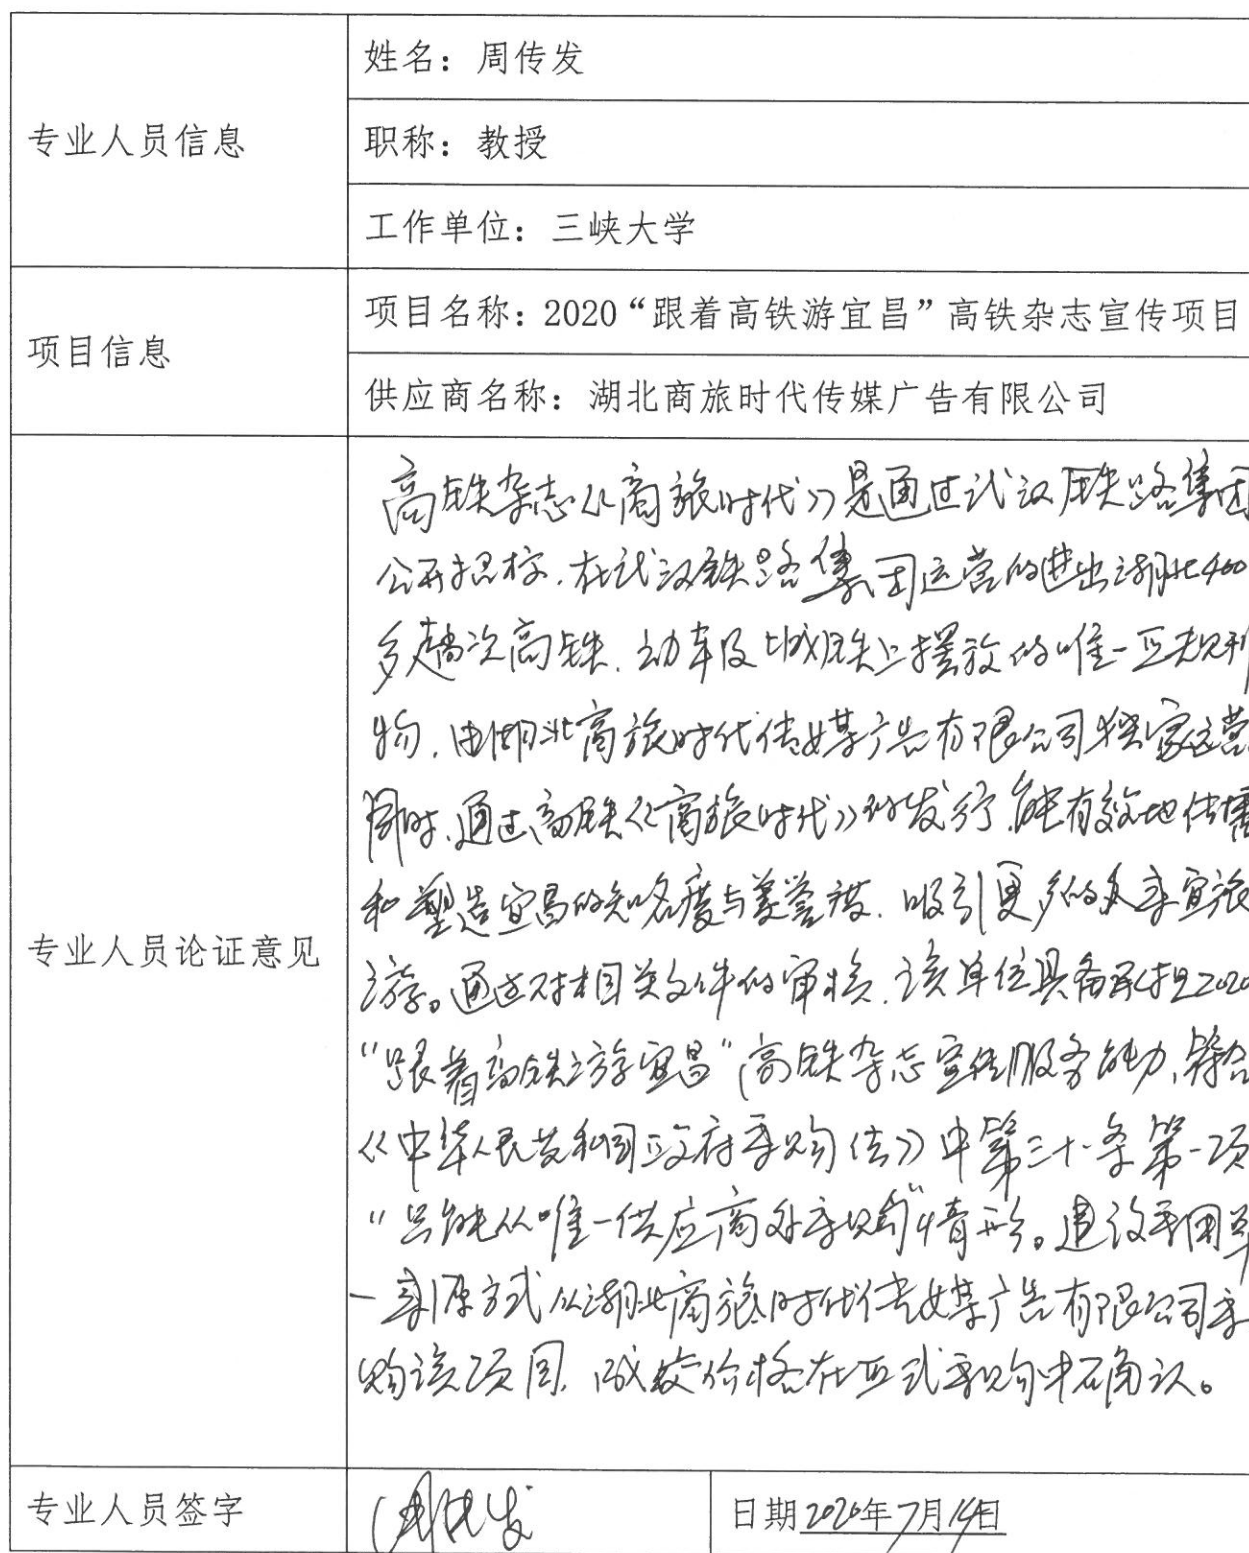 专业人员信息
姓名：周传发
职称：教授
工作单位：三峡大学
项目信息
项目名称：2020“跟着高铁游宜昌”高铁杂志宣传项目
供应商名称：湖北商旅时代传媒广告有限公司
专业人员论证意见
高铁杂志《商旅时代》是通过武汉铁路集团
公开招标，在武汉铁路集团运营的进出湖北400
多趟次高铁、动车及城铁上摆放的唯一正规刊
物，由湖北商旅时代传媒广告有限公司独家运营
同时，通过高铁《商旅时代》的发行，能有效地传播
和塑造宜昌的知名度与美誉度，吸引更多的人来宜旅
游。通过对相关文件的审核，该单位具备承担2020
“跟着高铁游宜昌”高铁杂志宣传服务能力，符合
《中华人民共和国政府采购法》中第三十一条第一项
“只能从唯一供应商处采购”情形。建议采用单
一来源方式从湖北商旅时代传媒广告有限公司采
购该项目，成交价格在正式采购中确认。
专业人员签字
周传发
日期2020年7月14日